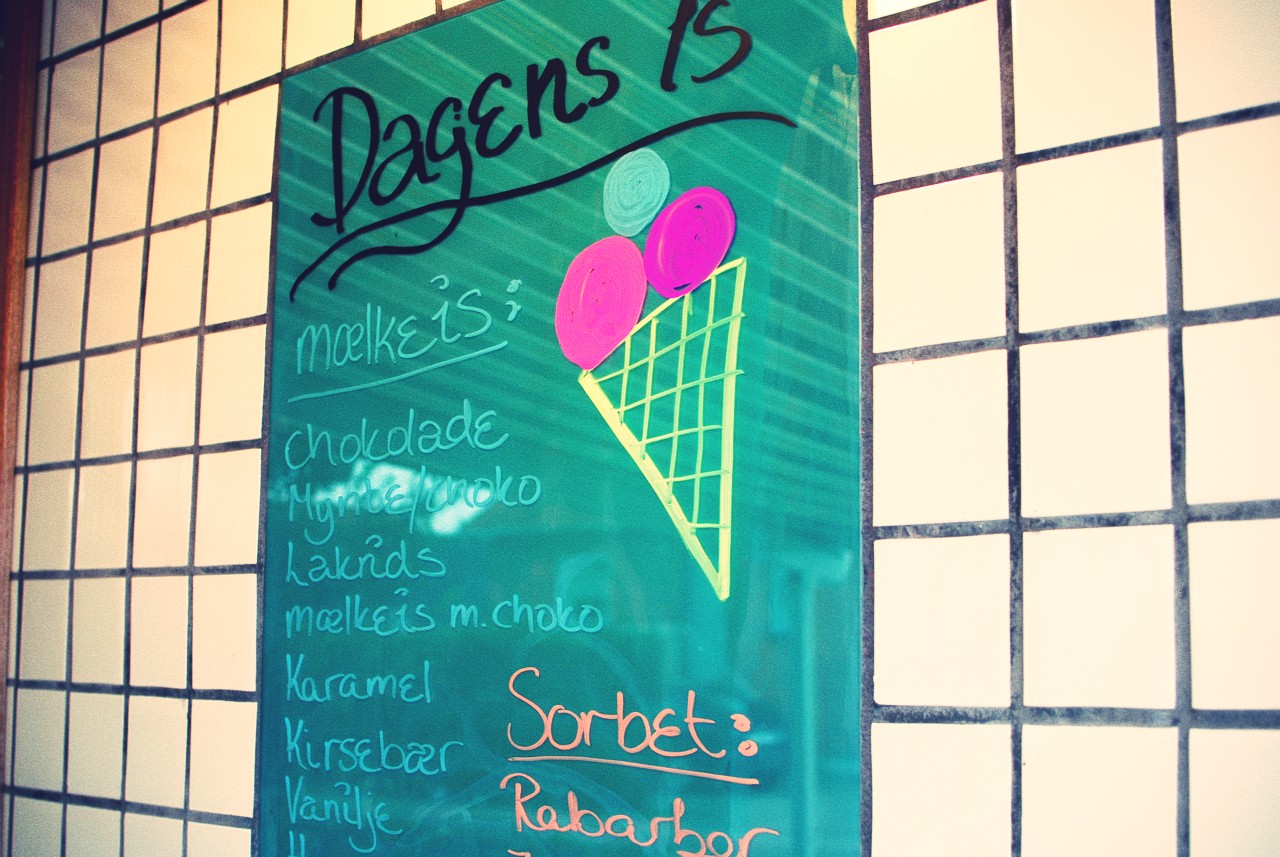 Dagens Is
mælkeis:
chokolade
Mynte/choko
Lakrids
mælkeis m. choko
Karamel
Kirsebær
Vanilje
Sorbet:
Rabarber